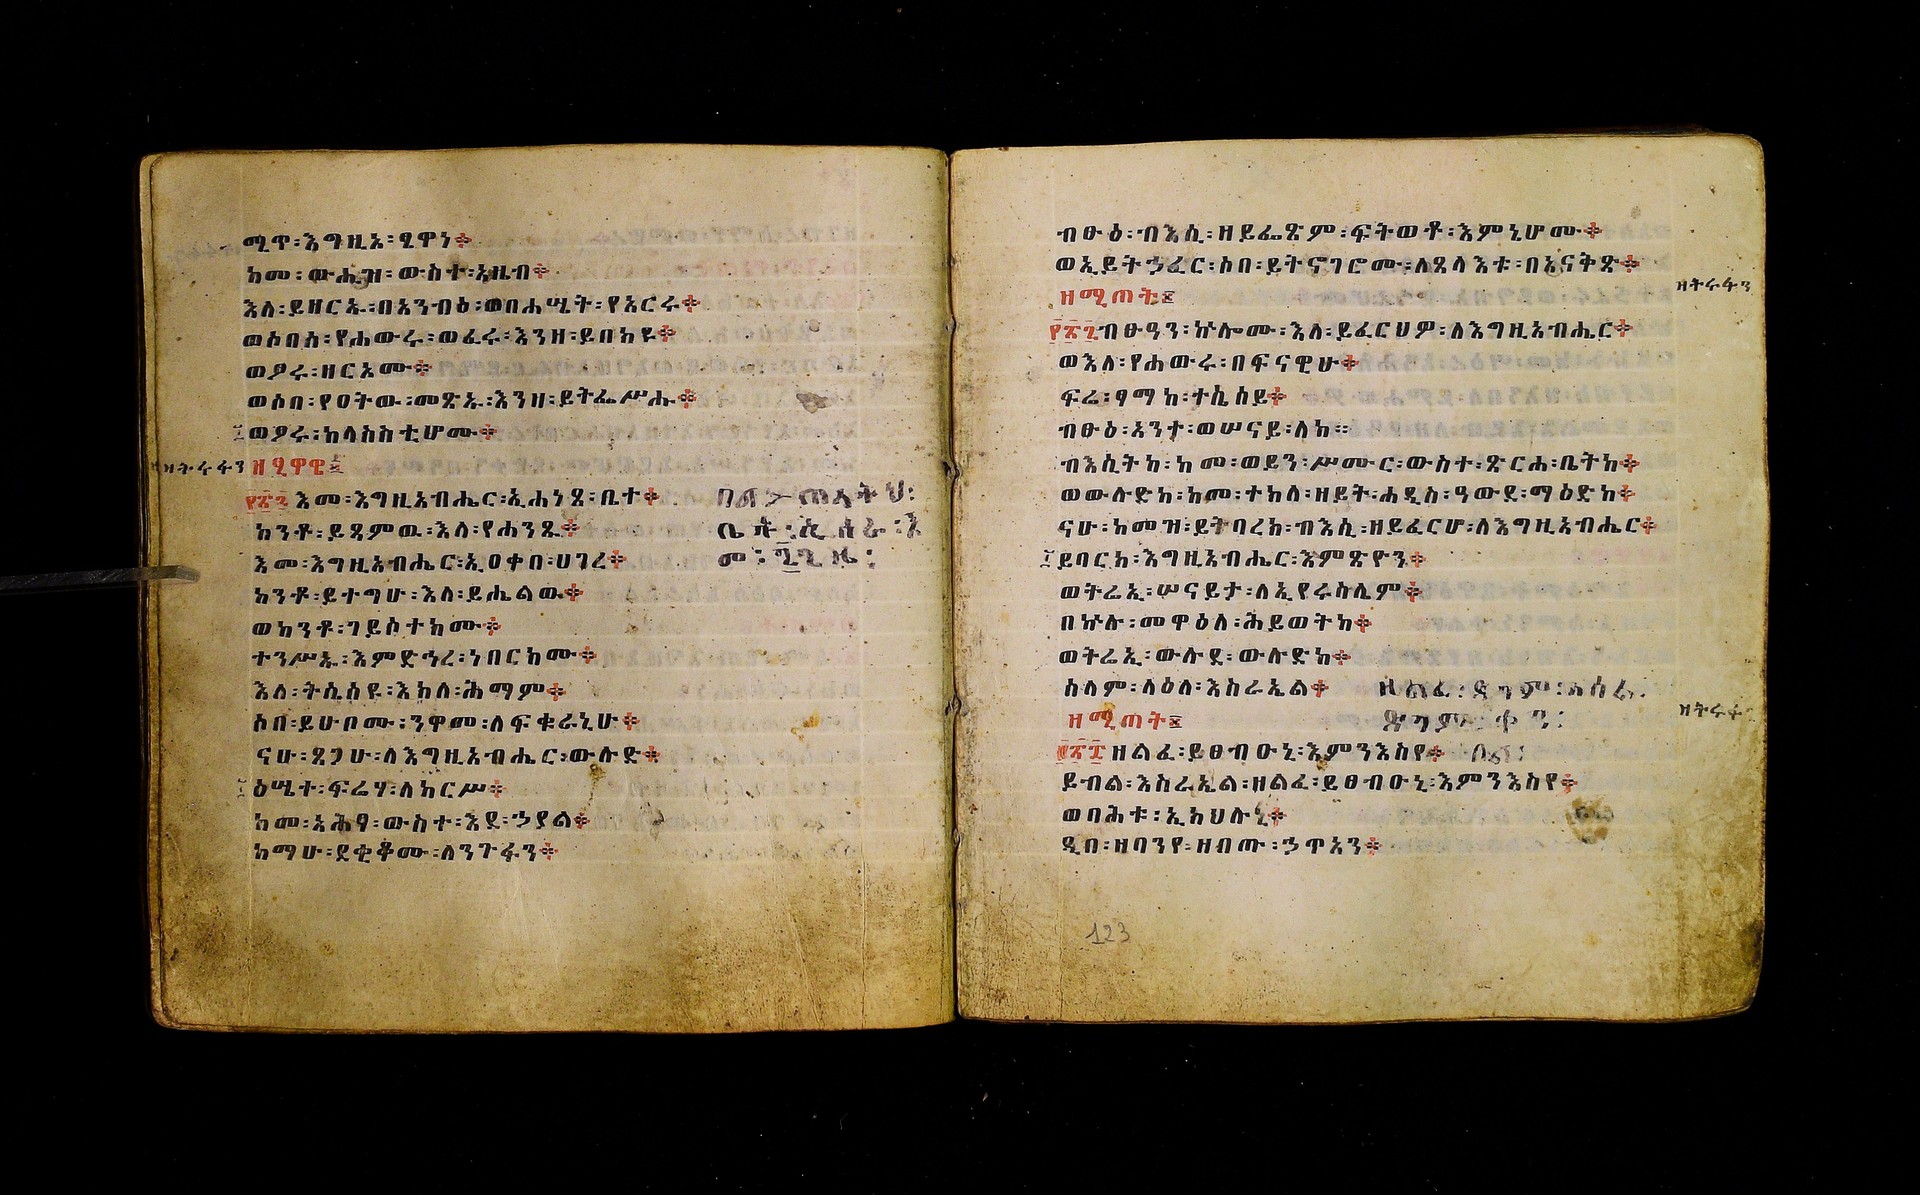 ሚጥ፡እግዚኦ፡ፂዋነ፨
ከመ፡ውሒዝ፡ውስተ፡አዜብ፨
እለ፡ይዘርኡ፡በአንብዕ፡ወበሐሤት፡የአርሩ፨
ወሰበሰ፡የሐውሩ፡ወፈሩ፡እንዘ፡ይበክዩ፨
ወፆሩ፡ዘርኦሙ፨
ወሰበ፡የዐትው፡መጽኡ፡እንዘ፡ይትፌሥሑ፨
ወፆሩ፡ከላስስቲሆሙ፨
ዘትሩፋን
ዘፂዋዊ፤
፻፳፮እመ፡እግዚአብሔር፡ኢሐነጸ፡ቤተ፨
ከንቶ፡ይጻምዉ፡እለ፡የሐንጹ፨
እመ፡እግዚአብሔር፡ኢዐቀበ፡ሀገረ፨
ከንቶ፡ይተግሁ፡እለ፡ይሔልዉ፨
ወከንቶ፡ገይሰተክሙ፨
ተንሥኡ፡እምድኅረ፡ነበርክሙ፨
እለ፡ትሴሰዩ፡እክለ፡ሕማም፨
ሰበ፡ይሁቦሙ፡ንዋመ፡ለፍቁራኒሁ፨
ናሁ፡ጸጋሁ፡ለእግዚአብሔር፡ውሉድ፨
ዕሤተ፡ፍሬሃ፡ለከርሥ፨
ከመ፡አሕፃ፡ውስተ፡እደ፡ኃያል፨
ከማሁ፡ደቂቆሙ፡ለንጉፋን፨
ብፁዕ፡ብእሲ፡ዘይፌጽም፡ፍትወቶ፡እምኒሆሙ፨
ወኢይትኃፈር፡ሰበ፡ይትናገሮሙ፡ለጸላእቱ፡በአናቅጽ፨
ዘትሩፋን
ዘሚጠት፤
፻፳፯ብፁዓን፡ኵሎሙ፡እለ፡ይፈርህዎ፡ለእግዚአብሔር፨
ወእለ፡የሐውሩ፡በፍናዊሁ፨
ፍሬ፡ፃማከ፡ተሴሰይ፨
ብፁዕ፡አንተ፡ወሠናይ፡ለከ።
ብእሲትከ፡ከመ፡ወይን፡ሥሙር፡ውስተ፡ጽርሐ፡ቤትከ፨
ወውሉድከ፡ከመ፡ተክለ፡ዘይት፡ሐዲስ፡ዓውደ፡ማዕድከ፨
ናሁ፡ከመዝ፡ይትባረክ፡ብእሲ፡ዘይፈርሆ፡ለእግዚአብሔር፨
ይባርከ፡እግዚአብሔር፡እምጽዮን፨
ወትሬኢ፡ሠናይታ፡ለኢየሩስሊም፨
በኵሉ፡መዋዕለ፡ሕይወትከ፨
ወትሬኢ፡ውሉደ፡ውሉድከ፨
ሰላም፡ላዕለ፡እስራኤል፨
ዘሚጠት፤
፻፳፰ዘልፈ፡ይፀብዑኒ፡እምንእስየ፨
ይብል፡እስራኤል፡ዘልፈ፡ይፀብዑኒ፡እምንእስየ፨
ወባሕቱ፡ኢክህሉኒ፨
ዲበ፡ዘባንየ፡ዘብጡ፡ኃጥአን፨
123